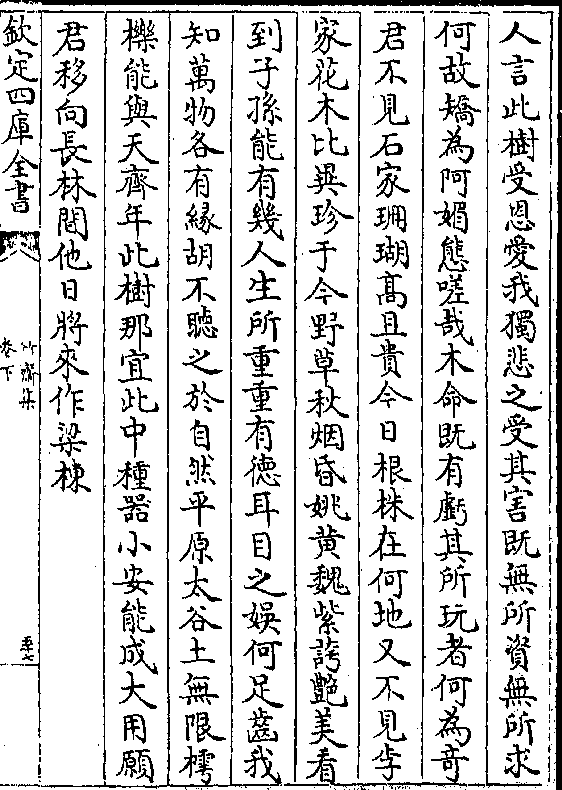 人言此樹受恩愛我獨悲之受其害既無所資無所求
何故矯為阿媚態嗟哉木命既有虧其所玩者何為竒
君不見石家珊瑚髙且貴今日根株在何地又不見李
家花木比異珍于今野草秋烟昏姚黄魏紫誇艶美看
到子孫能有幾人生所重重有徳耳目之娛何足齒我
知萬物各有緣胡不聽之於自然平原太谷土無限樗
櫟能與天齊年此樹那宜此中種器小安能成大用願
君移向長林間他日將來作梁棟
欽定四庫全書
竹齋集
卷下
五七